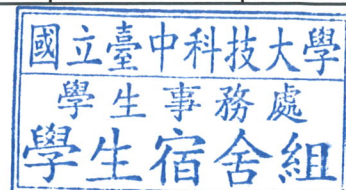 國立臺中科技大學
學生事務處
學生宿舍組